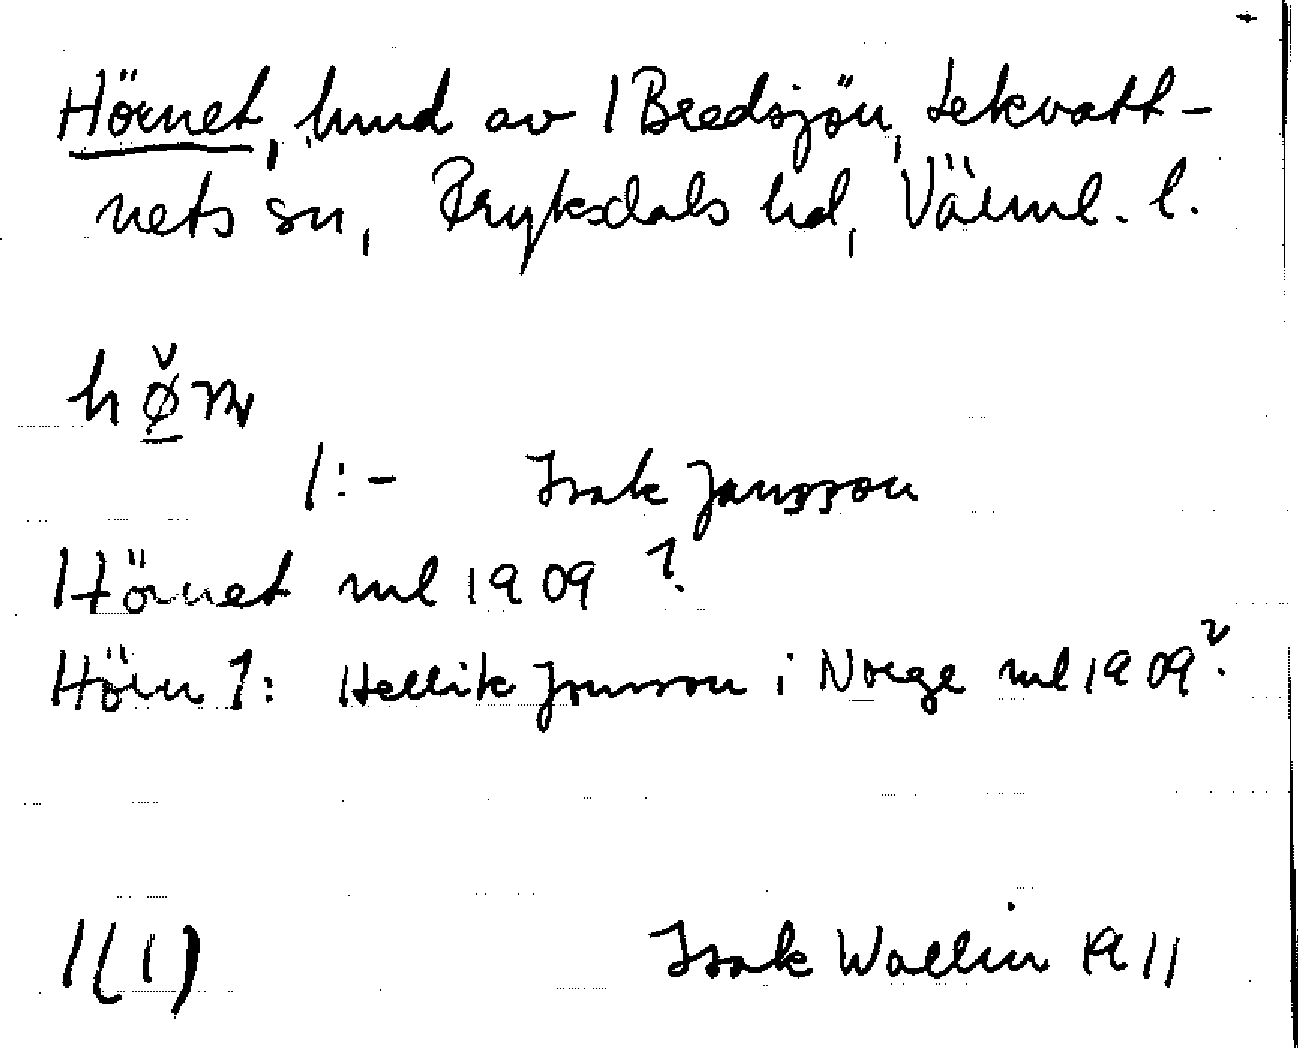 Hörnet, hmd av 1 Bredsjön, Lekvatt-
nets sn, Fryksdals hd, Värml. l.
1:- Isak Jansson
Hörnet ml 1909 ?
Hörn 1: Hellik Jonsson i Norge ml 1909?
1(1) Isak Wallin 1911